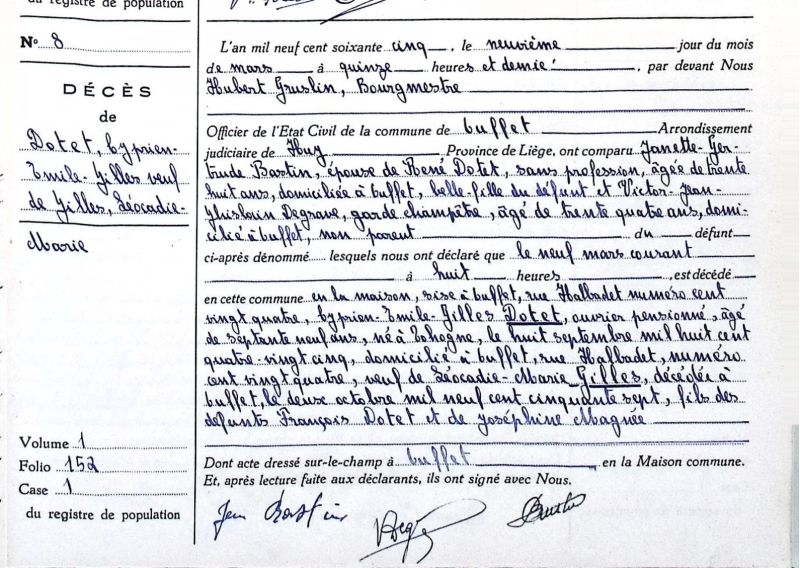 du registre de population
N° 8
DÉCÈS
de
Dotet, Cyprien-
Emile-Gilles veuf
de Gilles, Léocadie-
Marie
Volume 1
Folio 152
Case 1
du registre de population
L'an mil neuf cent soixante cinq, le neuvième jour du mois
de mars à quinze heures et demie, par devant Nous
Hubert Gruslin, Bourgmestre
Officier de l'Etat Civil de la commune de Buffet Arrondissement
judiciaire de Huy Province de Liège, ont comparu Janette-Ger-
trude Bastin, épouse de René Dotet, sans profession, âgée de trente
huit ans, domiciliée à Buffet, belle-fille du défunt et Victor-Jean-
Ghislain Degrave, garde champêtre, âgé de trente quatre ans, domi-
cilié à Buffet, non parent du défunt
ci-après dénommé lesquels nous ont déclaré que le neuf mars courant
à huit heures, est décédé
en cette commune en la maison, sise à Buffet, rue Halbadet numéro cent
vingt quatre, Cyprien-Emile-Gilles Dotet, ouvrier pensionné, âgé
de septante neuf ans, né à Tohogne, le huit septembre mil huit cent
quatre-vingt cinq, domicilié à Buffet, rue Halbadet, numéro
cent vingt quatre, veuf de Léocadie-Marie Gilles, décédée à
Buffet, le deux octobre mil neuf cent cinquante sept, fils des
défunts François Dotet et de Joséphine Magnée
Dont acte dressé sur-le-champ à Buffet en la Maison commune.
Et, après lecture faite aux déclarants, ils ont signé avec Nous.
Bastin